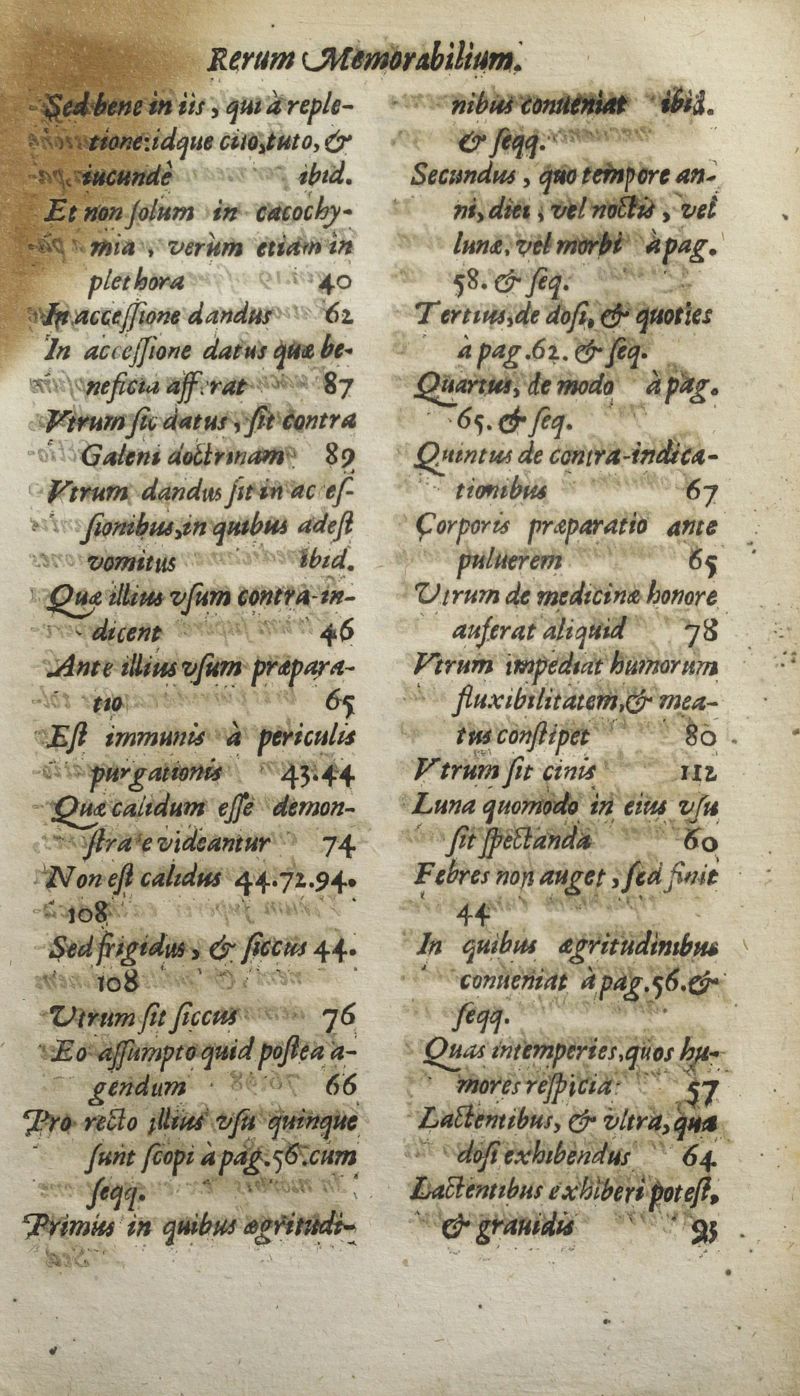 Rerum Memorabilium.
Sed bene in iis, qui à reple-
tione: idque cito, tuto, &
iucundè ibid.
Et non ſolum in cacochy-
mia, verùm etiam in
plethora 40
In acceſſione dandus 62
In acceſſione datus quæ be-
neficia afferat 87
Vtrum ſic datus, ſit contra
Galeni doctrinam 89
Vtrum dandus ſit in acceſ-
ſionibus, in quibus adeſt
vomitus ibid.
Quæ illius vſum contra-in-
dicent 46
Ante illius vſum præpara-
tio 65
Eſt immunis à periculis
purgationis 43.44
Quæ calidum eſſe demon-
ſtrare videantur 74
Non eſt calidus 44.72.94.
108
Sed frigidus, & ſiccus 44.
108
Vtrum ſit ſiccus 76
Eo aſſumpto quid poſtea a-
gendum 66
Pro recto illius vſu quinque
ſunt ſcopi à pag.56.cum
ſeqq.
Primus in quibus ægritudi-
nibus conueniat ibid.
& ſeqq.
Secundus, quo tempore an-
ni, diei, vel noctis, vel
lunæ, vel morbi à pag.
58. & ſeq.
Tertius, de doſi, & quoties
à pag.62. & ſeq.
Quartus, de modo à pag.
65. & ſeq.
Quintus de contra-indica-
tionibus 67
Corporis præparatio ante
puluerem 65
Vtrum de medicinæ honore
auferat aliquid 78
Vtrum impediat humorum
fluxibilitatem, & mea-
tus conſtipet 80
Vtrum ſit cinis 112
Luna quomodo in eius vſu
ſit ſpectanda 60
Febres non auget, ſed finit
44
In quibus ægritudinibus
conueniat à pag.56.&
ſeqq.
Quas intemperies, quos hu-
mores reſpiciat 57
Lactentibus, & vltra, qua
doſi exhibendus 64
Lactentibus exhiberi poteſt,
& grauidis 93